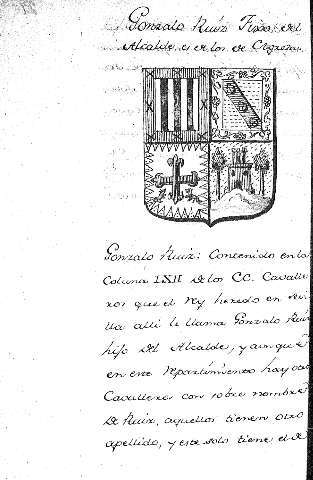 Gonzalo Ruiz hijo del
Alcalde, es de los de
Gonzalo Ruiz: Contenido en la
Coluna LXII de los CC. Cavalle
ros que el Rey heredo en
lla alli le llama Gonzalo Ruiz
hijo del Alcalde, y aunque
en este repartimiento hay otro
Cavallero con sobre nombre
de Ruiz, aquellos tienen otro
apellido, y este solo tiene el de